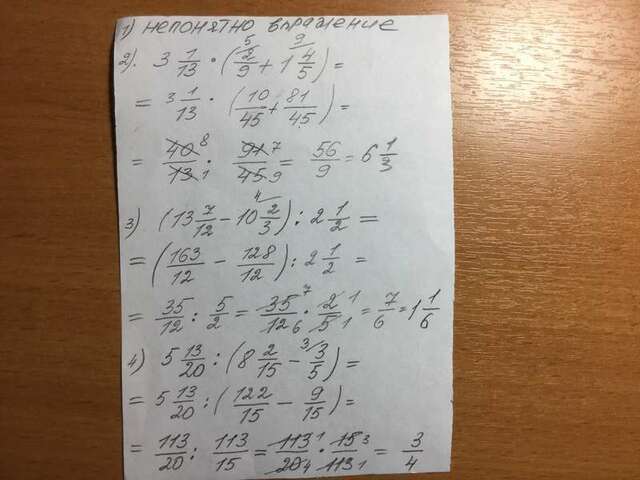 1) непонятно выражение
2). 3 1/13 · (2/9 5 + 1 4/5 9) =
= 3 1/13 · (10/45 + 81/45) =
= 40/13 8 1 · 91/45 7 9 = 56/9 = 6 1/3
3) (13 7/12 - 10 2/3 4) : 2 1/2 =
= (163/12 - 128/12) : 2 1/2 =
= 35/12 : 5/2 = 35/12 7 6 · 2/5 1 1 = 7/6 = 1 1/6
4) 5 13/20 : (8 2/15 - 3/5 3) =
= 5 13/20 : (122/15 - 9/15) =
= 113/20 : 113/15 = 113/20 1 4 · 15/113 3 1 = 3/4